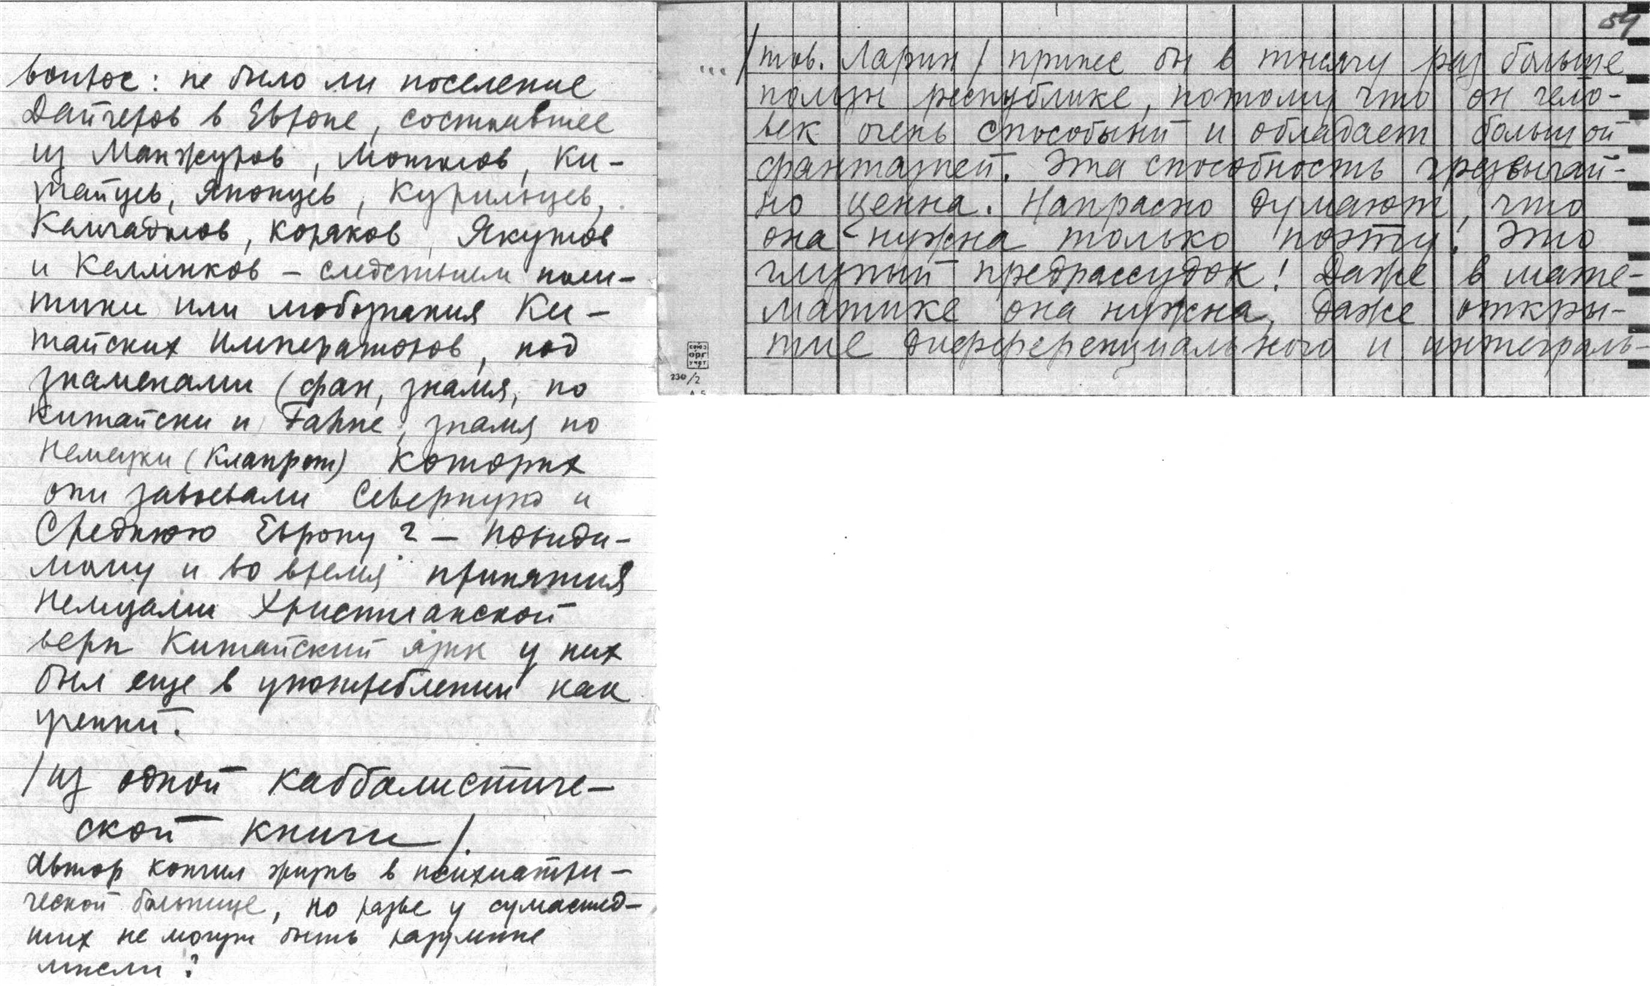 вопрос: не было ли поселение
Дайчеров в Европе, состоявшее
из Манжуров, монголов, Ки-
тайцев, Японцев, Курильцев,
Камчадалов, коряков, Якутов
и Келлинков – следствием поли-
тики или мобужания Ки-
тайских Императоров, под
знаменами (фан, знамя, по
китайски и Fahne, знамя по
немецки (Клапрот) которых
они завоевали Северную и
Среднюю Европу? – Повиди-
мому и во время принятия
немцами Христианской
веры Китайский язык у них
был еще в употреблении как
ученый.
/из одной каббалистиче-
ской книги/
Автор кончил жизнь в психиатри-
ческой больнице, но разве у сумасшед-
ших не могут быть разумные
мысли?
54
... /тов. Ларин/ принес бы в тысячу раз больше
пользы республике, потому что он чело-
век очень способный и обладает большой
фантазией. Эта способность чрезвычай-
но ценна. Напрасно думают, что
она нужна только поэту! Это
глупый предрассудок! Даже в мате-
матике она нужна, даже откры-
тие дифференциального и интеграль-
союз
орг
учет
230/2